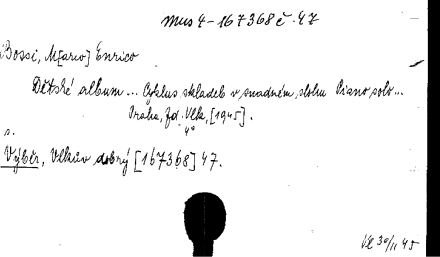 Mus 4-167368 č. 47
Bossi, M[arco] Enrico
Dětské album ... Cyklus skladeb v snadném slohu Piano solo...
Praha, Fd. Vlk, [1945].
4°
Výběr, Vlkův dobrý [167368] 47.
Vč 30/II 45